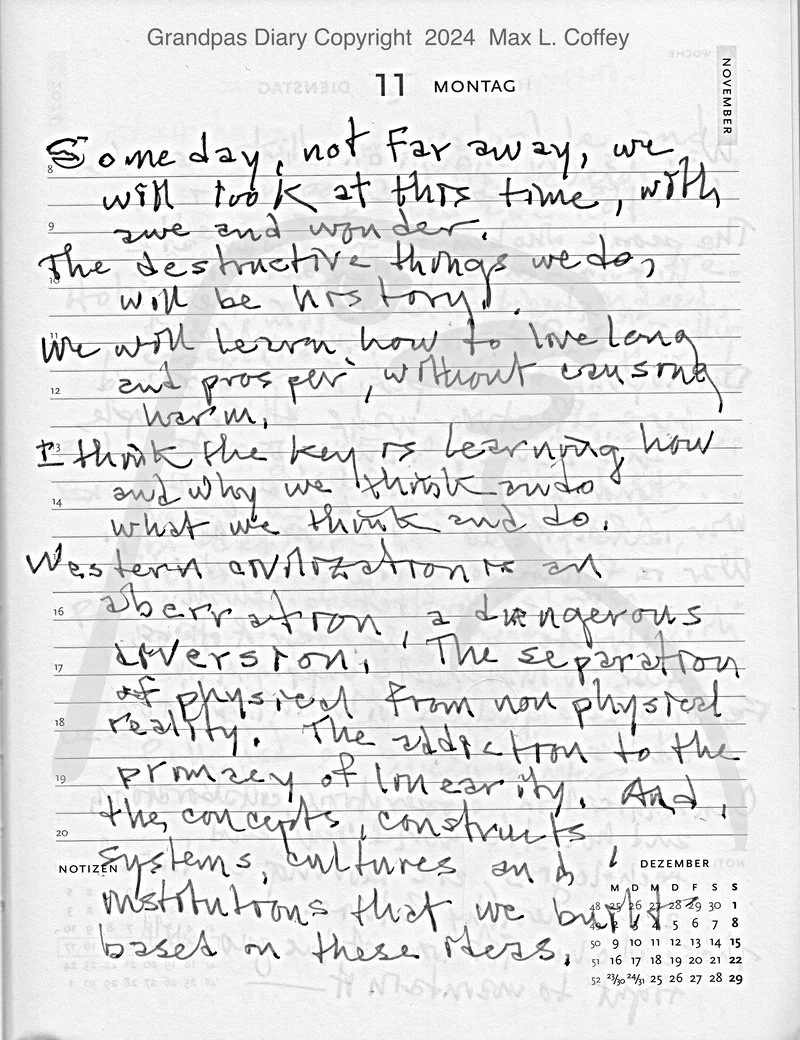 Grandpas Diary Copyright 2024 Max L. Coffey
11 MONTAG
NOVEMBER
Some day, not far away, we
8
will look at this time, with
9
awe and wonder.
The destructive things we do,
10
will be history.
11
We will learn how to live long
12
and prosper, without causing
harm.
13
I think the key is learning how
and why we think and do
14
what we think and do.
Western civilization is an
16
aberration, a dangerous
diversion. The separation
17
of physical from non physical
18
reality. The addiction to the
19
primacy of linearity. And,
the, concepts, constructs,
20
systems, cultures and,
NOTIZEN
institutions that we built
based on these ideas.
DEZEMBER
M D M D F S S
48 25 26 27 28 29 30 1
49 2 3 4 5 6 7 8
50 9 10 11 12 13 14 15
51 16 17 18 19 20 21 22
52 23/30 24/31 25 26 27 28 29